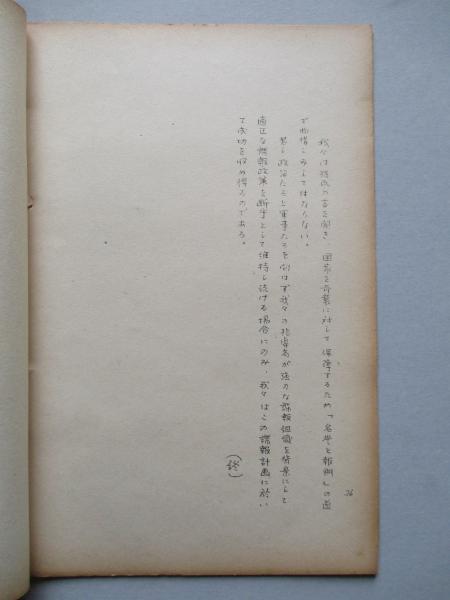 我々は孫氏の言を聞き、国家を奇襲に対して保障するため「名誉と報酬」の
で物惜しみしてはならない。
若し政治たると軍事たるを問はず我々の指導者が強力な諜報組織を背景にして
適正な諜報政策を断乎として維持し続ける場合にのみ、我々はこの諜報計画に於い
て成功を収め得るのである。
(終)
26